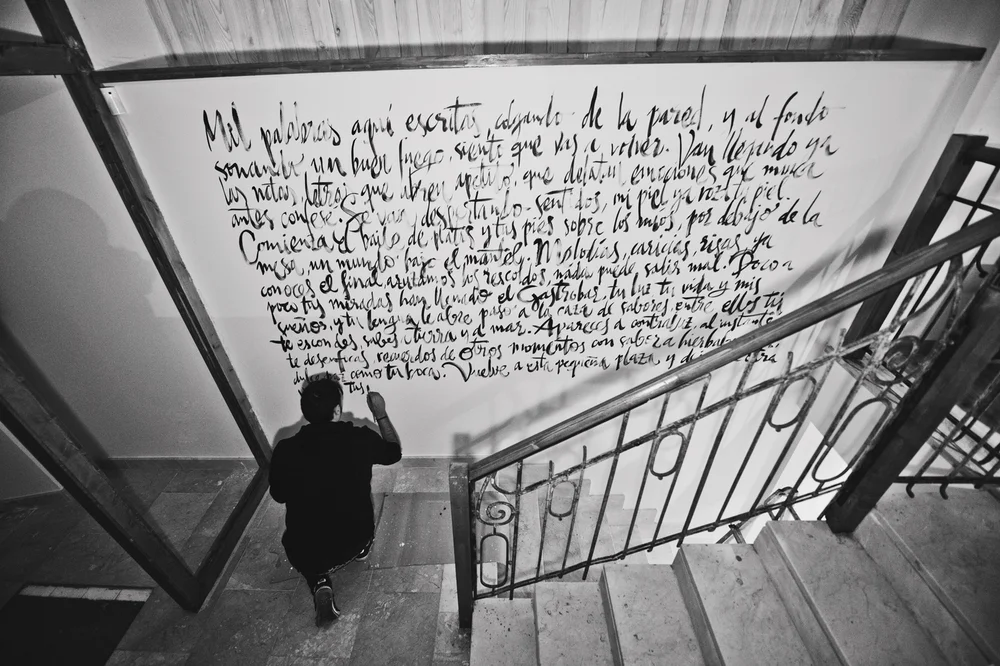 Mil palabras aquí escritas, colgando de la pared, y al fondo
sonando un buen fuego, siento que vas a volver. Van llegando ya
las notas, letras que abren apetito, que delatan emociones que nunca
antes confesé. Se van despertando sentidos, mi piel ya roza tu piel.
Comienza el baile de platos y tus pies sobre los míos, por debajo de la
mesa, un mundo bajo el mantel y. Melodías, caricias, risas, ya
conoces el final, avivamos los rescoldos, nada puede salir mal. Poco a
poco tus miradas han llenado el Gastrobar, tu luz tu vida y mis
sueños, y tu lengua le abre paso a la caza de sabores, entre ellos tú
te escondes, sabes a tierra y a mar. Apareces a contraluz, al instante
te desenfocas, recuerdos de otros momentos con sabor a hierbabuena
como tu boca. Vuelve a esta pequeña plaza y
tus